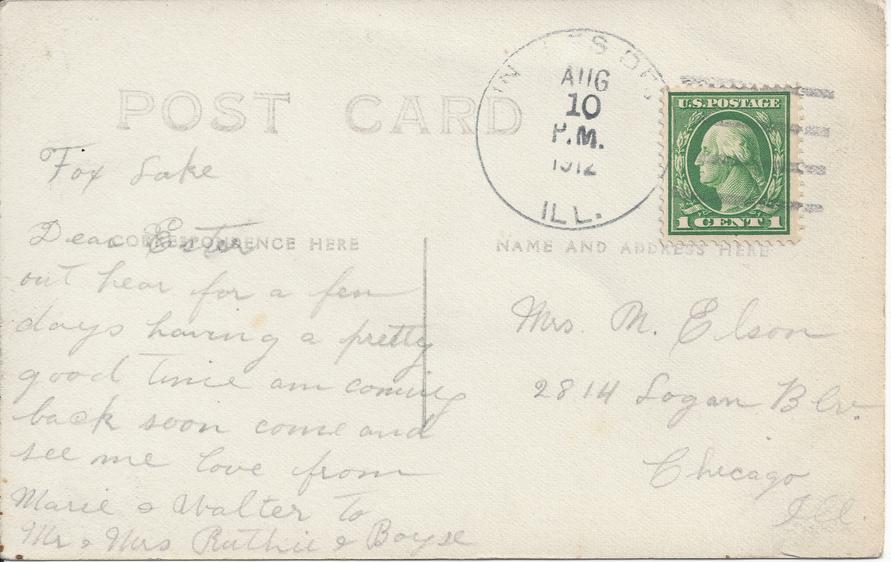 POST CARD
AUG
10
P.M.
1912
ILL.
U.S. POSTAGE
1 CENT 1
Fox Lake
CORRESPONDENCE HERE
NAME AND ADDRESS HERE
Dear Ester
out hear for a few
days having a pretty
good time am coming
back soon come and
see me love from
Marie & Walter to
Mr & Mrs Ruthie & Boyse
Mrs. M. Elson
2814 Logan Blv.
Chicago
Ill